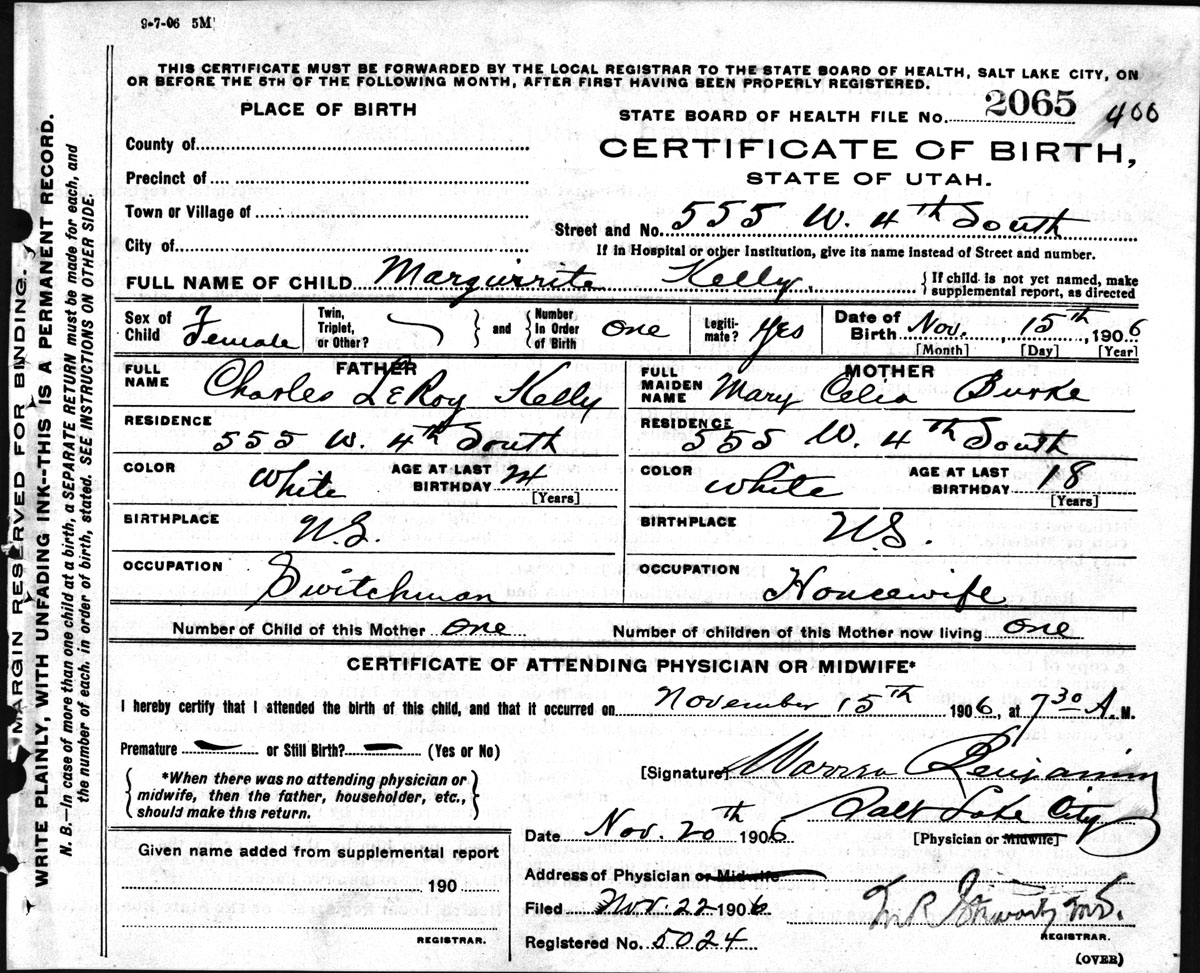 9-7-06 5M
THIS CERTIFICATE MUST BE FORWARDED BY THE LOCAL REGISTRAR TO THE STATE BOARD OF HEALTH, SALT LAKE CITY, ON
OR BEFORE THE 5TH OF THE FOLLOWING MONTH, AFTER FIRST HAVING BEEN PROPERLY REGISTERED.
PLACE OF BIRTH
STATE BOARD OF HEALTH FILE No. 2065 400
County of
CERTIFICATE OF BIRTH,
Precinct of
STATE OF UTAH.
Town or Village of
Street and No. 555 W. 4th South
City of
If in Hospital or other Institution, give its name instead of Street and number.
FULL NAME OF CHILD Margurrite Kelly. {If child is not yet named, make
supplemental report, as directed
Sex of Child Female
Twin, Triplet, or Other? } and {Number In Order of Birth one
Legiti-mate? Yes
Date of Birth Nov. 15th, 1906
[Month] [Day] [Year]
FATHER
FULL NAME Charles LeRoy Kelly
RESIDENCE 555 W. 4th South
COLOR White AGE AT LAST BIRTHDAY 24
[Years]
BIRTHPLACE U.S.
OCCUPATION Switchman
MOTHER
FULL MAIDEN NAME Mary Celia Burke
RESIDENCE 555 W. 4th South
COLOR White AGE AT LAST BIRTHDAY 18
[Years]
BIRTHPLACE U.S.
OCCUPATION Housewife
Number of Child of this Mother one Number of children of this Mother now living one
CERTIFICATE OF ATTENDING PHYSICIAN OR MIDWIFE*
I hereby certify that I attended the birth of this child, and that it occurred on November 15th 1906, at 7 30 A.M.
Premature — or Still Birth? — (Yes or No)
{*When there was no attending physician or
midwife, then the father, householder, etc.,
should make this return.}
[Signature] Warren Benjamin
Salt Lake City
Date Nov. 20th 1906 [Physician or Midwife]
Given name added from supplemental report
190
REGISTRAR.
Address of Physician or Midwife
Filed Nov. 22 1906
M.D.
REGISTRAR.
Registered No. 5024
(OVER)
MARGIN RESERVED FOR BINDING.
WRITE PLAINLY, WITH UNFADING INK--THIS IS A PERMANENT RECORD.
N. B.—In case of more than one child at a birth, a SEPARATE RETURN must be made for each, and
the number of each, in order of birth, stated. SEE INSTRUCTIONS ON OTHER SIDE.